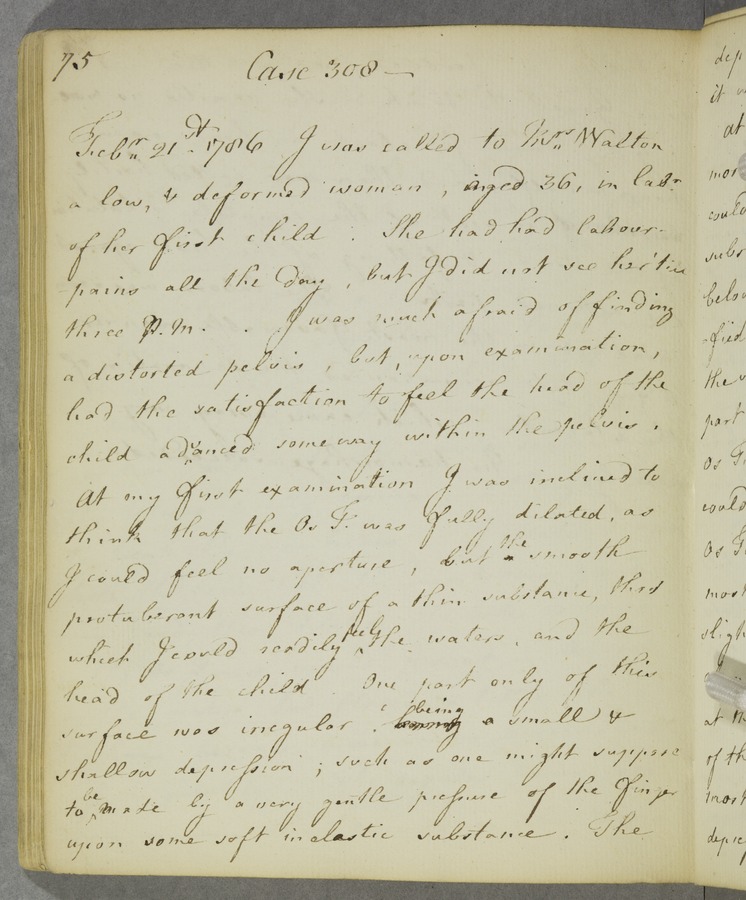 75
Case 308 —
Febry. 21st. 1786 I was called to Mrs. Walton
a low, & deformed woman, aged 36, in labr.
of her first child. She had had labour-
pains all the day, but I did not see her till
three P.M. . I was much afraid of finding
a distorted pelvis, but, upon examination,
had the satisfaction to feel the head of the
child advanced some way within the pelvis.
At my first examination I was inclined to
think that the Os T. was fully dilated, as
I could feel no aperture, but the smooth
protuberant surface of a thin substance, thro
which I could readily feel the waters, and the
head of the child. One part only of this
surface was irregular, being a small &
shallow depression; such as one might suppose
to be made by a very gentle pressure of the finger
upon some soft inelastic substance. The
dep
it
at
mor
could
subs
belo
fied
the
part
os T
could
Os T
most
sligh
at th
of th
most
depre